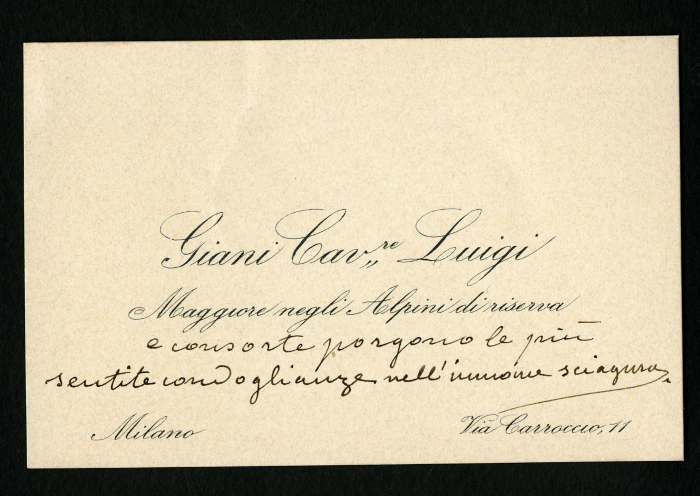 Giani Cav.re Luigi
Maggiore negli Alpini di riserva
e consorte porgono le più
sentite condoglianze nell'immane sciagura.
Milano
Via Carroccio, 11